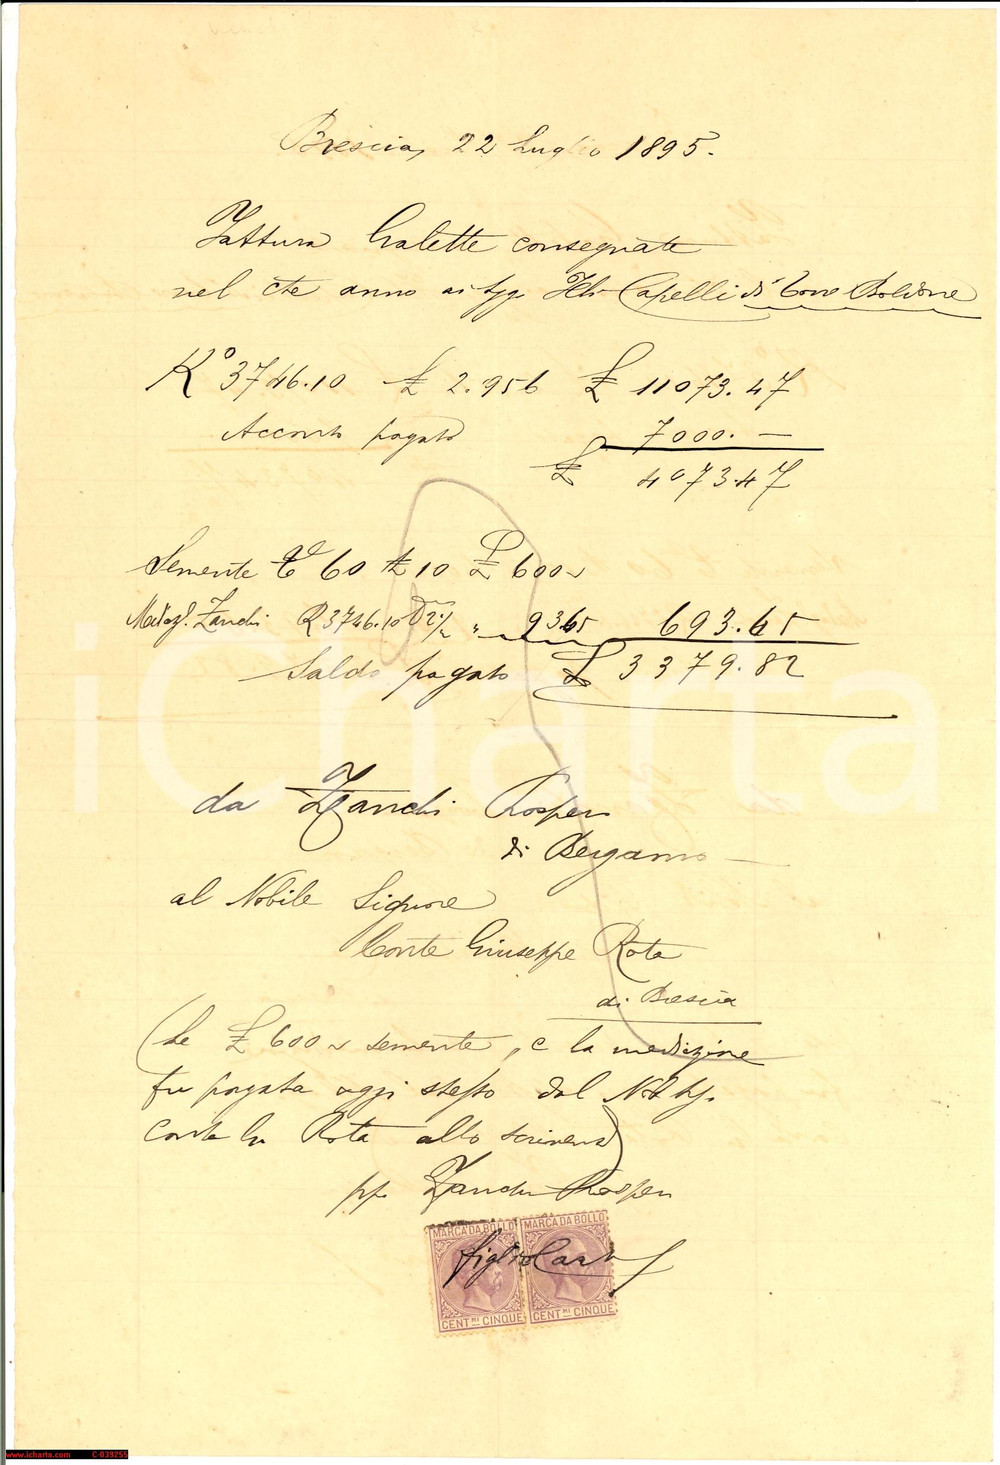 Brescia, 22 Luglio 1895.
Fattura Galette consegnate
nel che anno ai Sigg. Flli Capelli di
K° 3746.10 £ 2.956 £ 11073.47
Acconto pagato 7000. —
£ 4073.47
Semente 60 £ 10 £ 600
Zanchi K 3746.10 " 93.65 693.65
Saldo pagato £ 3379.82
da Zanchi Prospero
di Bergamo
al Nobile Signore
Conte Giuseppe Rota
di Brescia
(Le £ 600 semente, e la medizione
fu pagata oggi stesso dal
Conte Rota allo scrivente)
pp. Zanchi Prospero
MARCA DA BOLLO MARCA DA BOLLO
figlio Carlo
CENT.MI CINQUE CENT.MI CINQUE
iCharta
www.icharta.com C-039255